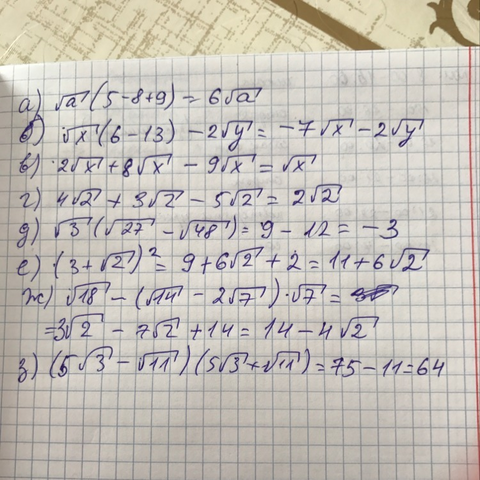 а) √a (5-8+9) = 6√a
б) √x (6-13) - 2√y = -7√x - 2√y
в) 2√x + 8√x - 9√x = √x
г) 4√2 + 3√2 - 5√2 = 2√2
д) √3 (√27 - √48) = 9 - 12 = -3
е) (3+√2)² = 9 + 6√2 + 2 = 11 + 6√2
ж) √18 - (√14 - 2√7) · √7 =
= 3√2 - 7√2 + 14 = 14 - 4√2
з) (5√3 - √11) (5√3 + √11) = 75 - 11 = 64